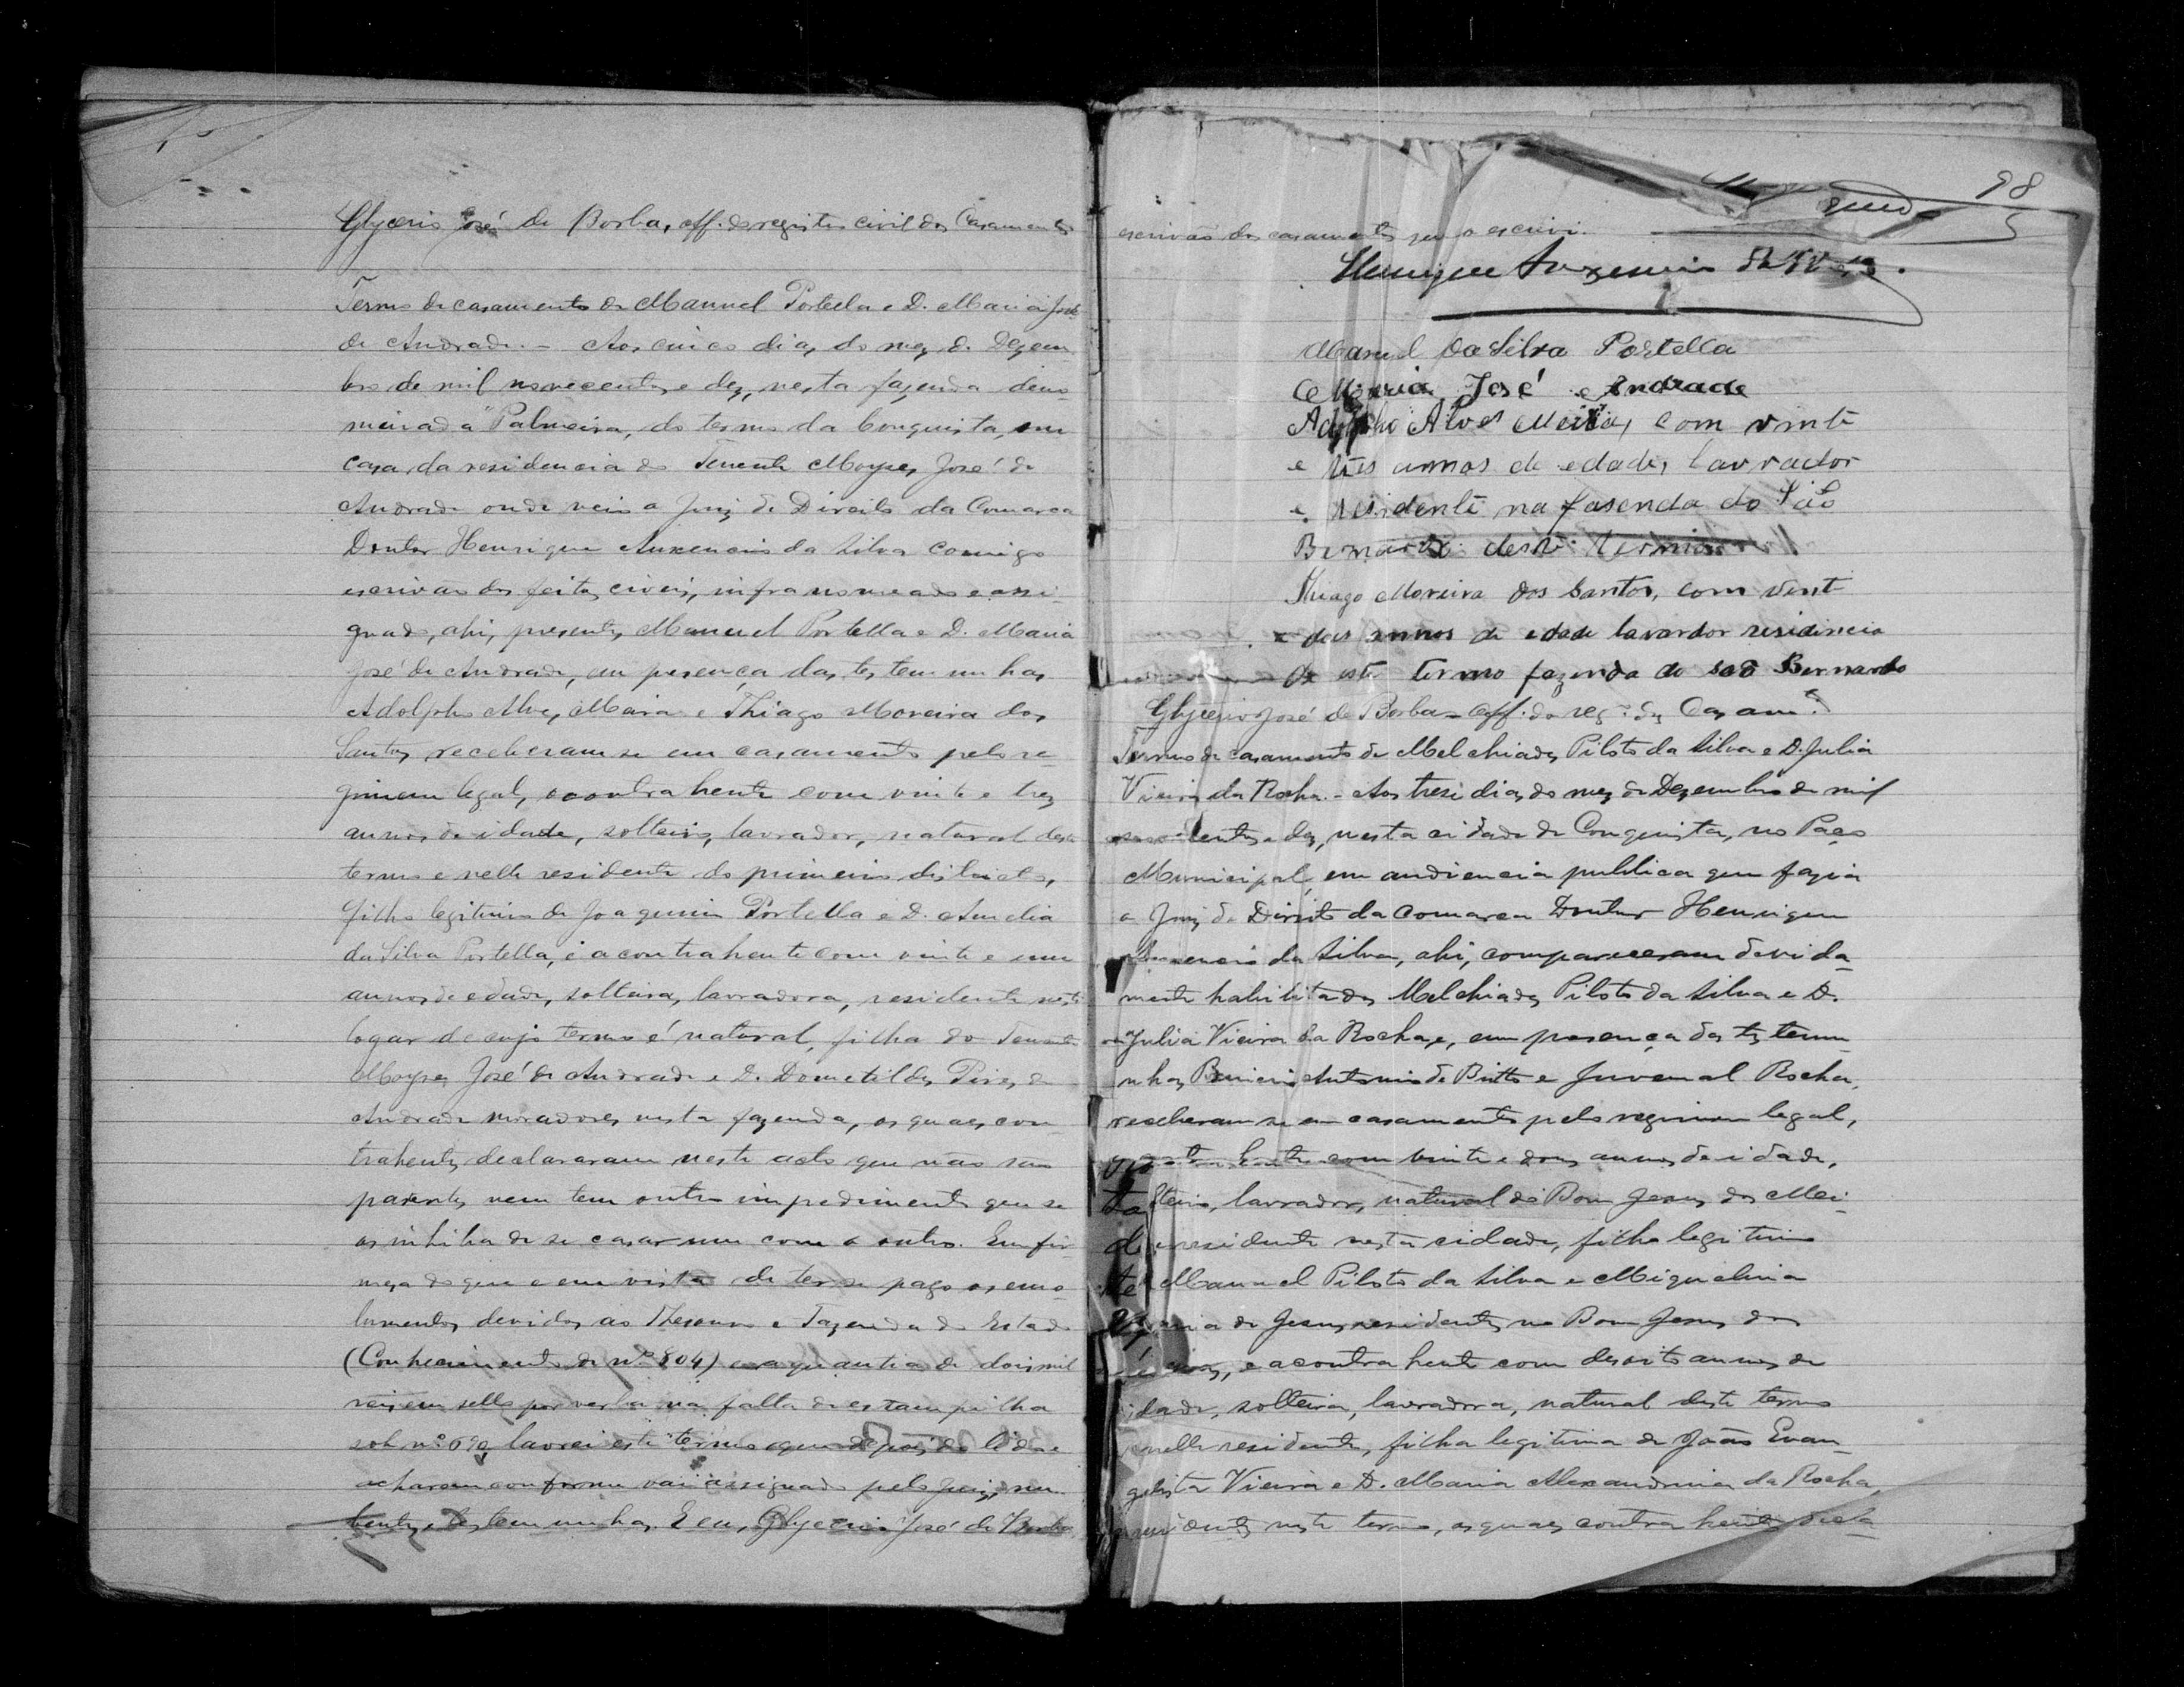 Glycerio José de Borba, off. do registro civil dos Casamentos
Termo de casamento de Manuel Portella e D. Maria José
de Andrade. - Aos cinco dias do mez de Dezem
bro de mil novecentos e dez, nesta fazenda deno
minada "Palmeira, do termo da Conquista, em
casa da residencia do Tenente Moyses José de
Andrade onde veio o Juiz de Direito da Comarca
Doutor Henrique Auxencio da Silva comigo
escrivão dos feitos civeis, infra nomeado e assi-
gnado, ahi, presentes Manuel Portella e D. Maria
José de Andrade, em presença das testemunhas
Adolpho Alves Maira e Thiago Moreira dos
Santos receberam-se em casamento pelo re-
gimem legal, o contrahente com vinte e trez
annos de idade, solteiro, lavrador, natural deste
termo e nelle residente do primeiro districto,
filho legitimo de Joaquim Portella e D. Amelia
da Silva Portella, e a contrahente com vinte e um
annos de edade, solteira, lavradora, residente neste
logar de cujo termo é natural, filha do Tenente
Moyses José de Andrade e D. Dometildes Pires de
Andrade moradores nesta fazenda, os quaes con-
trahentes declararam neste acto que não são
parentes nem tem outro impedimento que se
os inhiba de se casar um com o outro. Em fir
meza do que e em vista de ter-se pago os emo-
lumentos devidos ao Thesouro e Fazenda do Estado
(Conhecimento de nº 804) e a quantia de dois mil
reis em sello por verba na falta de estampilha
sob nº lavrei este termo que depois de lido e
acharem conforme vai assignado pelo juiz,
bentes e testemunhas. Eu, Glycerio José de Borba
98
escrivão dos casamentos que o escrevi.
Henrique Auxencio da Silva.
Manuel da Silva Portella
Maria José e Andrade
Adolpho Alves Meira, com vinte
e três annos de edade, lavrador
e residente na fasenda do São
Bernardo deste termo
Thiago Moreira dos Santos, com vint
e dois annos de edade lavardor residencia
de este termo fazenda do são Bernardo
Glycerio José de Borba - Off. do reg. dos Casam.
Termo de casamento de Melchiades Piloto da Silva e D. Julia
Vieira da Rocha. - Aos trese dias do mez de Dezembro de mil
novecentos e dez, nesta cidade de Conquista, no Paço
Municipal, em audiencia publica que fazia
o Juiz de Direito da comarca Doutor Henrique
Auxencio da Silva, ahi, compareceram devida-
mente habilitados Melchiades Piloto da Silva e D.
Julia Vieira da Rocha, e, em presença das testemu-
nhas Antonio de Britto e Juvenal Rocha,
receberam-se em casamento pelo regimem legal,
o contrahente com vinte e dous annos de idade,
solteiro, lavrador, natural de Bom Jesus dos Mei-
residente nesta cidade, filho legitimo
de Manuel Piloto da Silva e Miquelina
Maria de Jesus, residentes no Bom Jesus dos
Meiras, e a contrahente com desoito annos de
idade, solteira, lavradora, natural deste termo
e nelle residente, filha legitima de João Evan-
gelista Vieira e D. Maria Alexandrina da Rocha,
residentes neste termo, os quaes contrahentes decla-